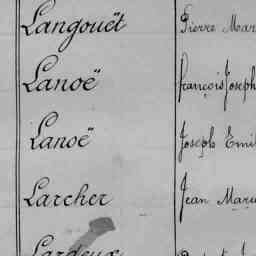 Langouët Pierre Mar
Lanoë françois Joseph
Lanoë Joseph Emil
Larcher Jean Marie
Lardeux